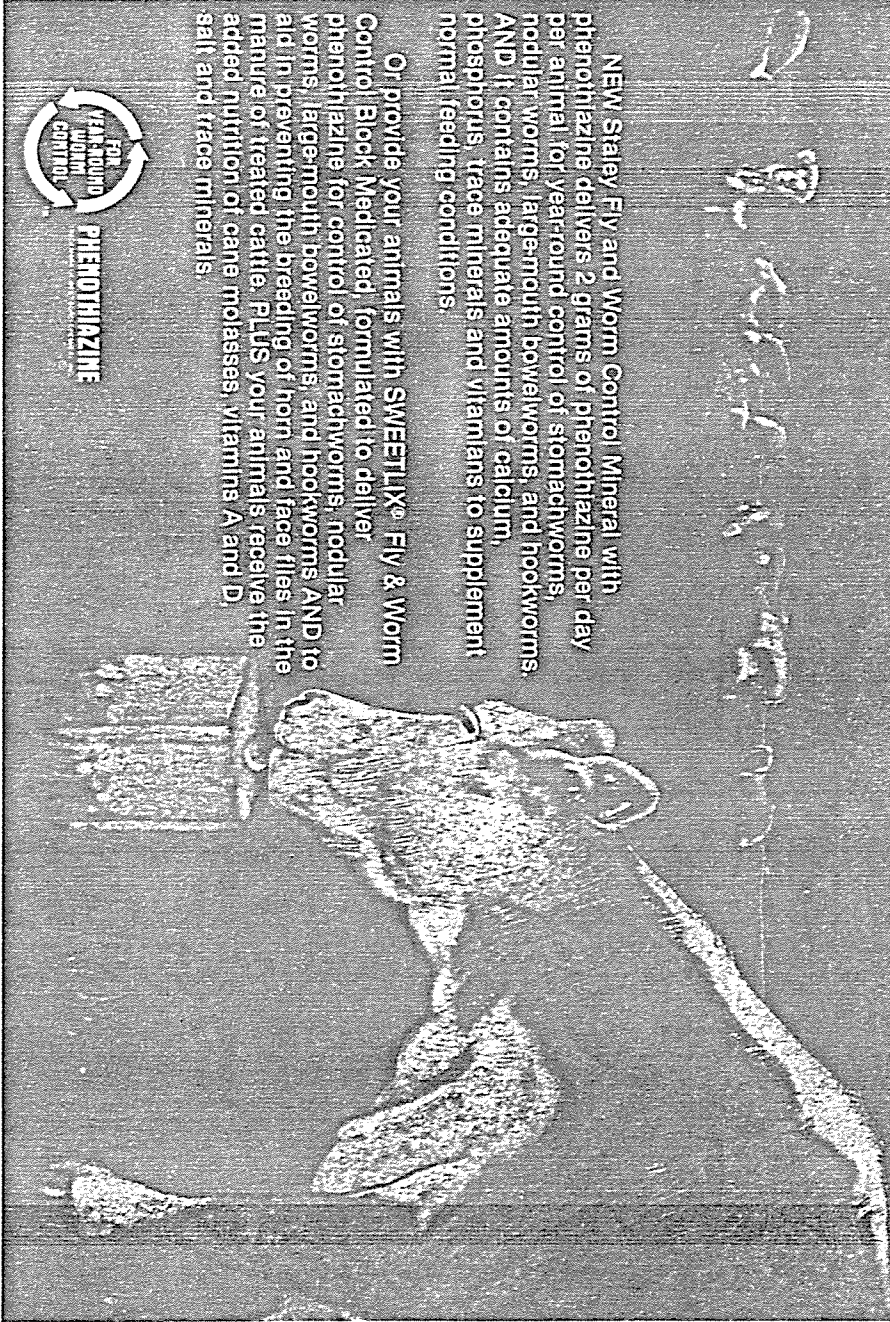 NEW Staley Fly and Worm Control Mineral with
phenothiazine delivers 2 grams of phenothiazine per day
per animal for year-round control of stomachworms,
nodular worms, large-mouth bowelworms, and hookworms.
AND it contains adequate amounts of calcium,
phosphorus, trace minerals and vitamians to supplement
normal feeding conditions.
Or provide your animals with SWEETLIX® Fly & Worm
Control Block Medicated, formulated to deliver
phenothiazine for control of stomachworms, nodular
worms, large-mouth bowelworms, and hookworms AND to
aid in preventing the breeding of horn and face flies in the
manure of treated cattle. PLUS your animals receive the
added nutrition of cane molasses, vitamins A and D,
salt and trace minerals.
FOR
YEAR-ROUND
WORM
CONTROL
PHENOTHIAZINE